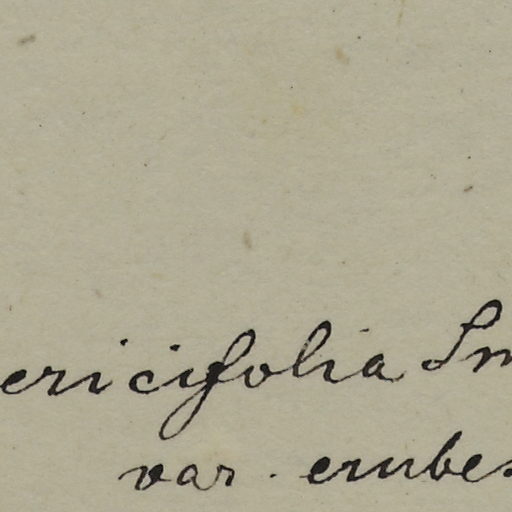 ericifolia Sm
var. erubes